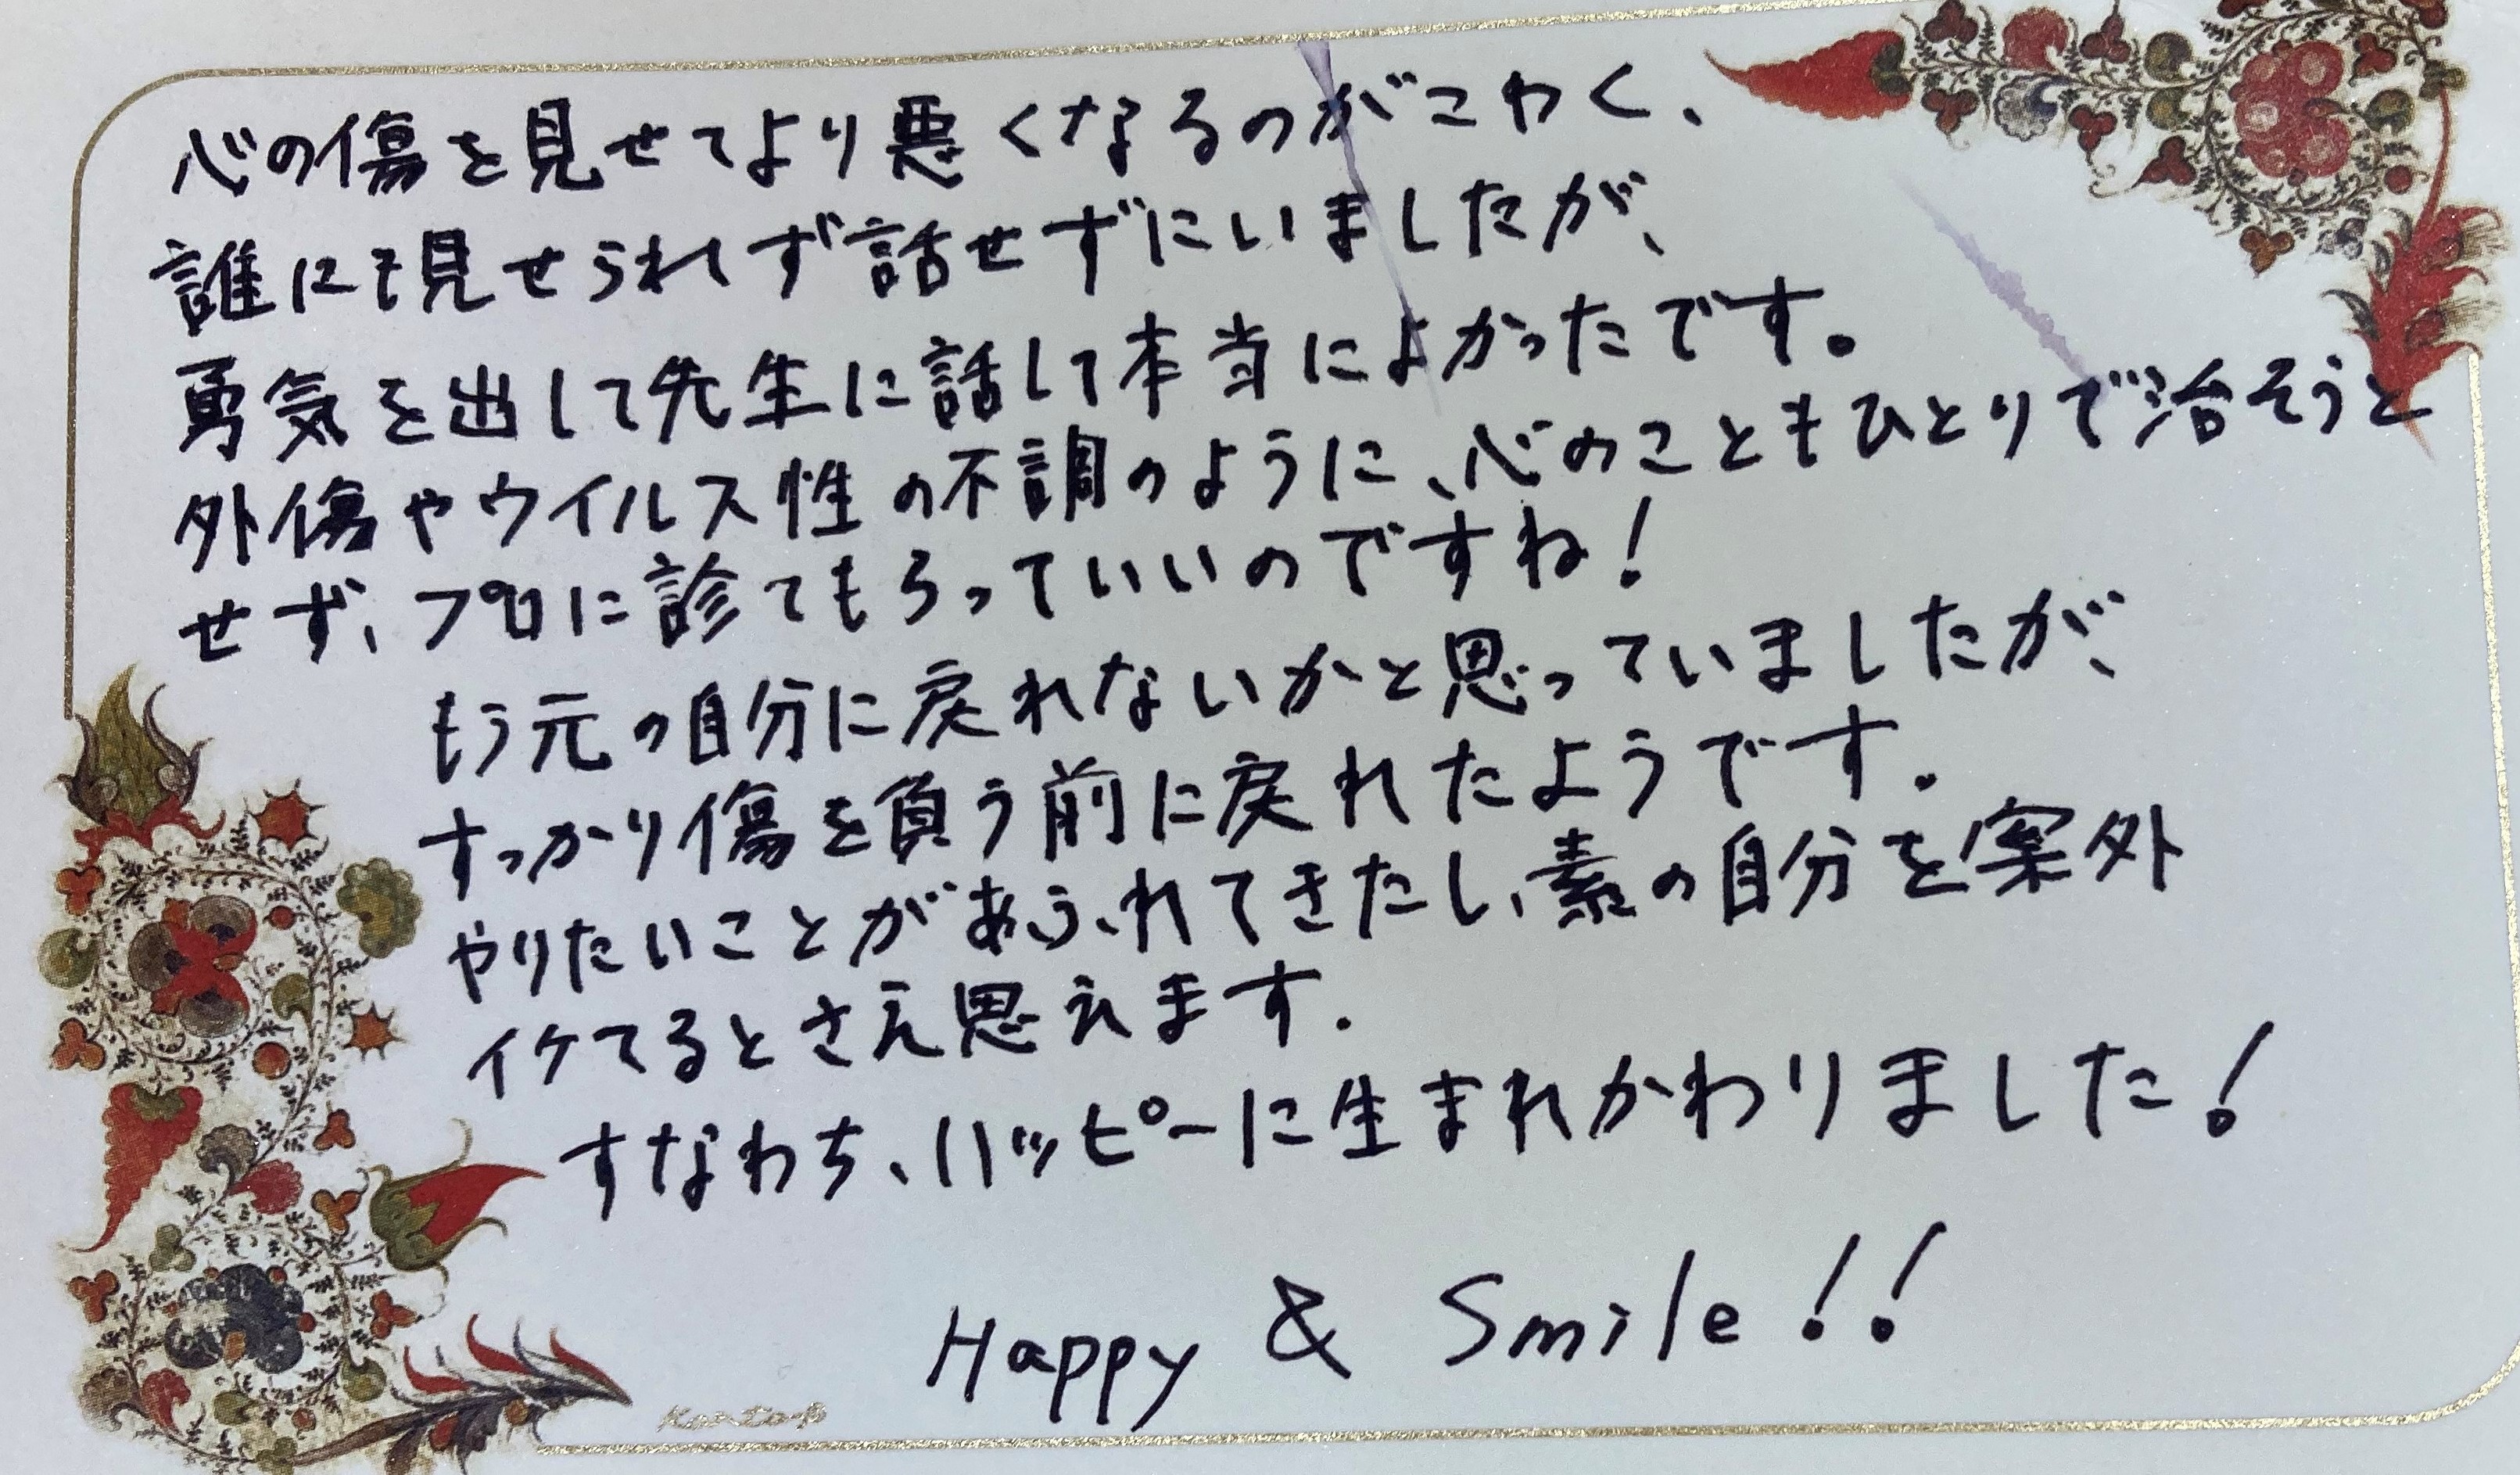 心の傷を見せてより悪くなるのがこわく、
誰にも見せられず話せずにいましたが、
勇気を出して先生に話して本当によかったです。
外傷やウイルス性の不調のように、心のこともひとりで治そうと
せず、プロに診てもらっていいのですね!
もう元の自分に戻れないかと思っていましたが、
すっかり傷を負う前に戻れたようです.
やりたいことがあふれてきたし、素の自分を案外
イケてるとさえ思えます.
すなわち、ハッピーに生まれかわりました!
Happy & Smile!!